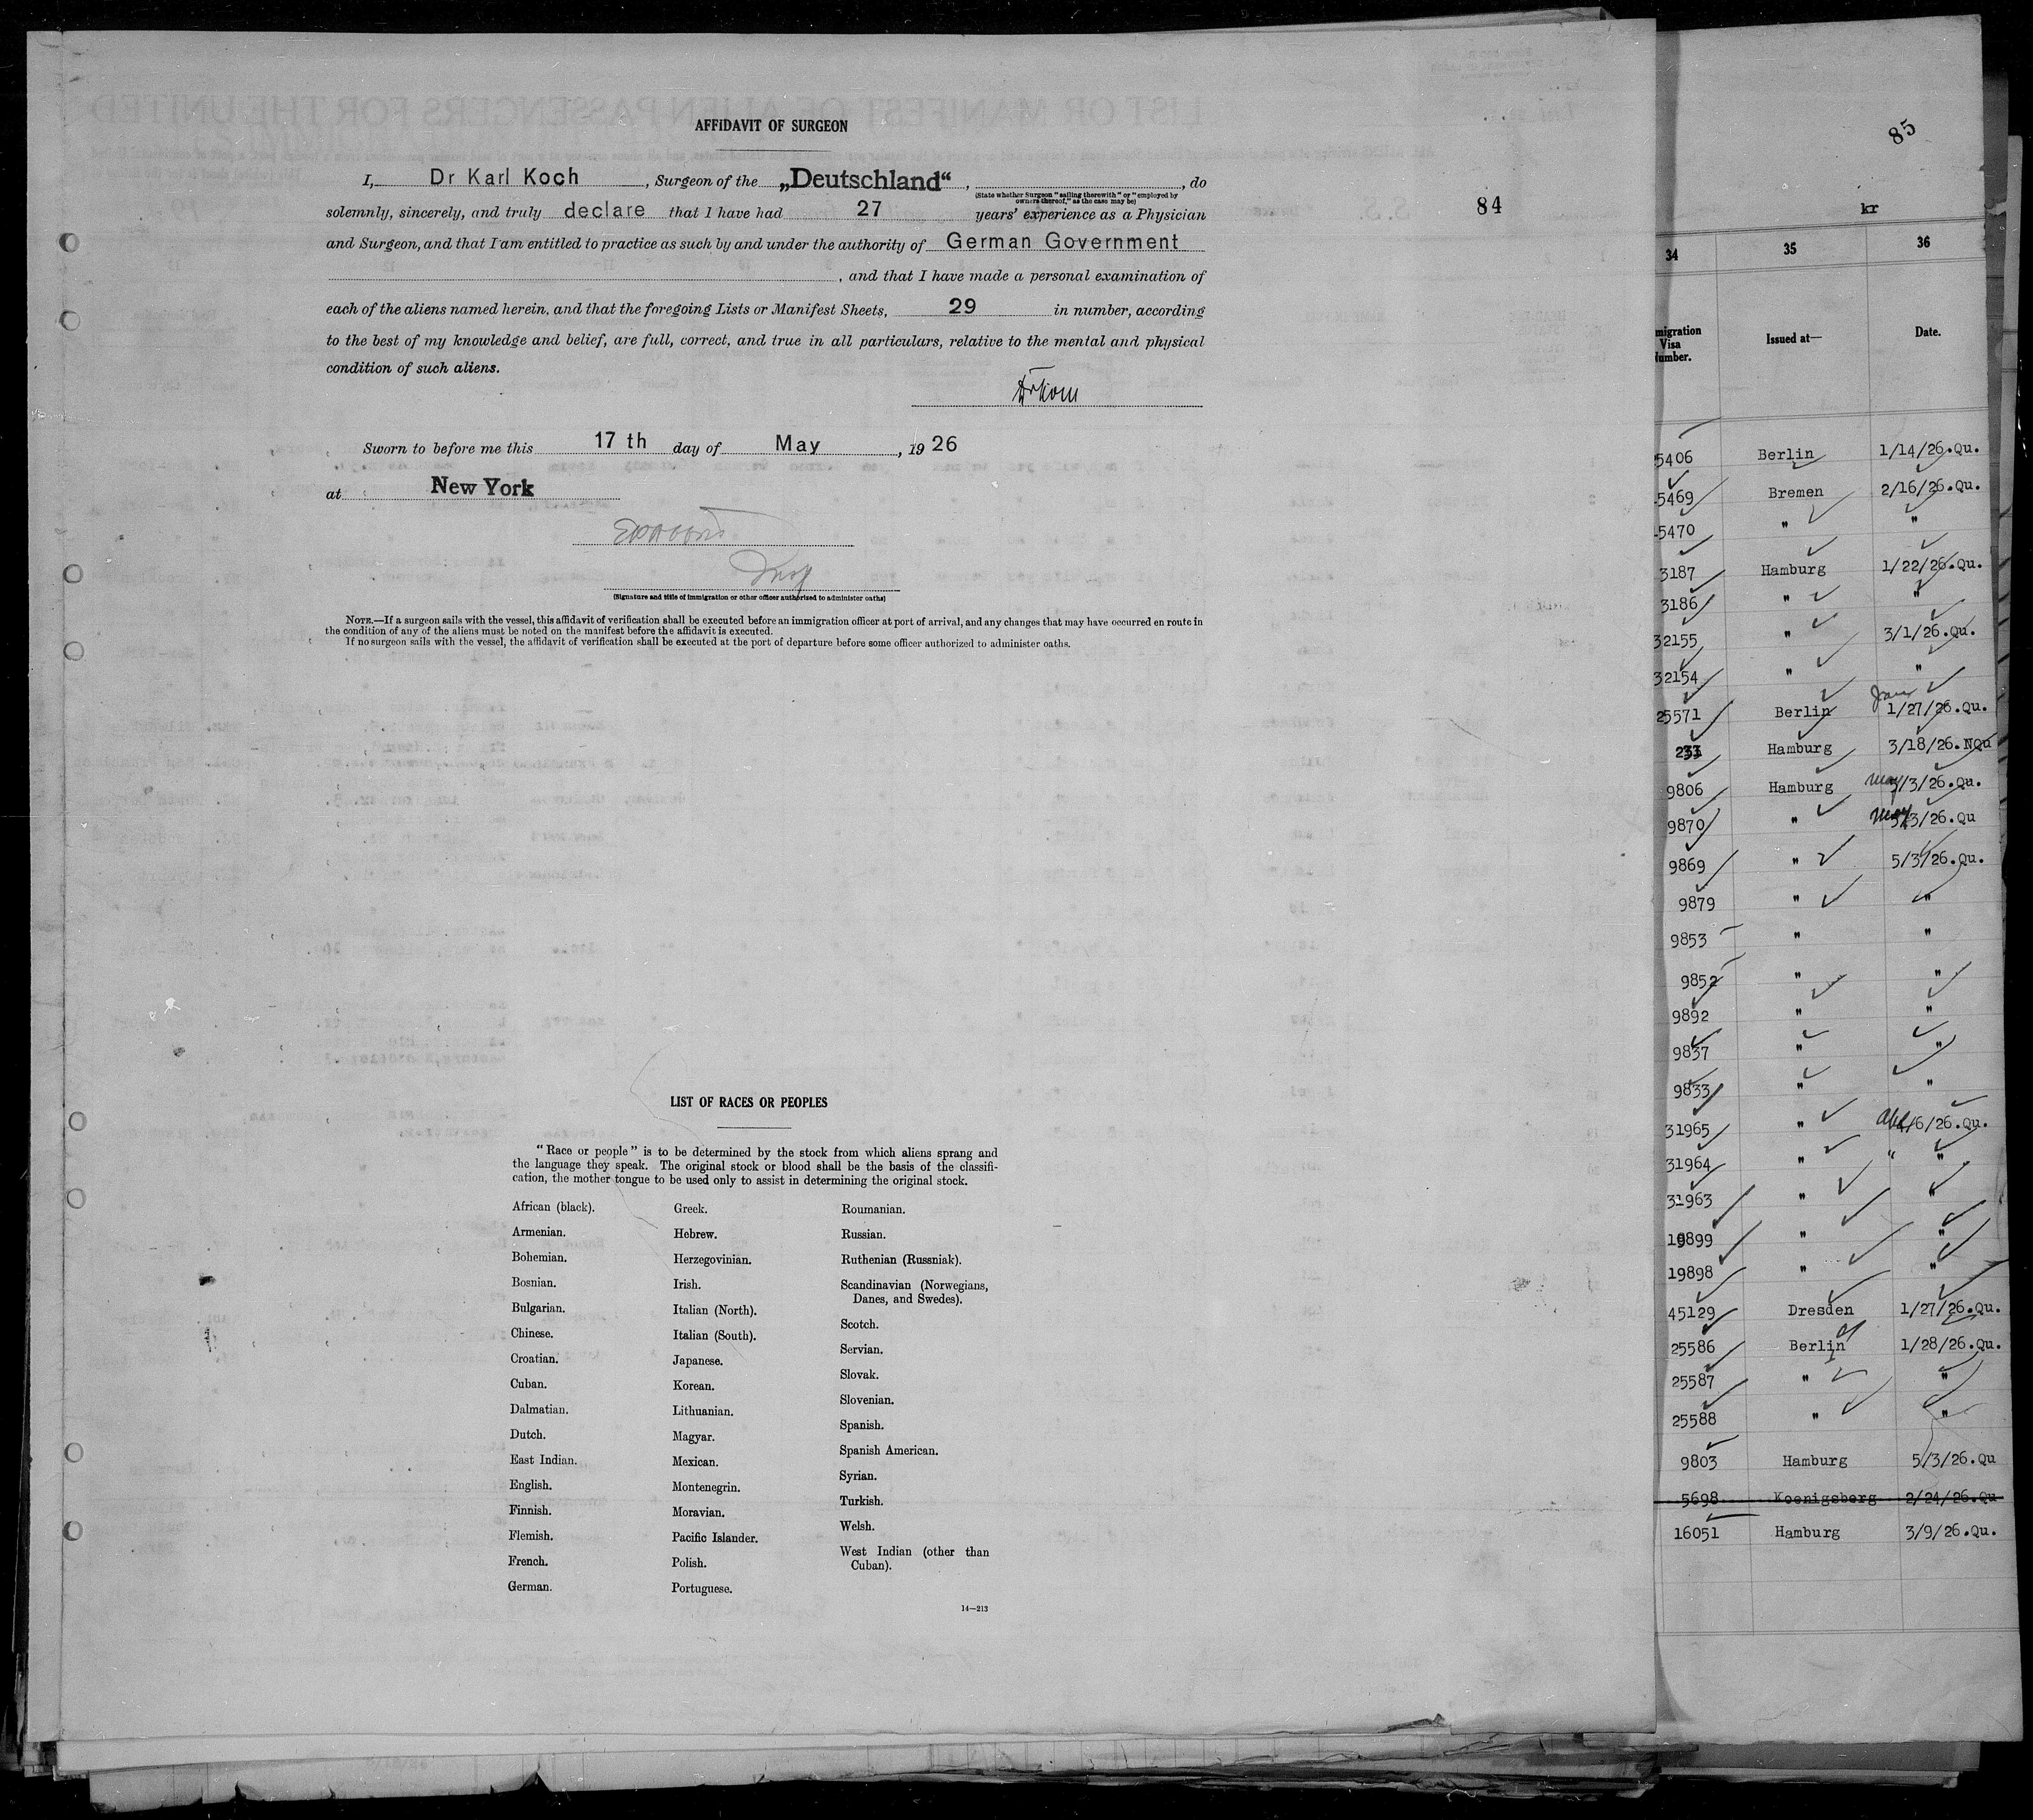 AFFIDAVIT OF SURGEON
I, Dr Karl Koch, Surgeon of the „Deutschland“, , do
(State whether Surgeon "sailing therewith" or "employed by owners thereof," as the case may be)
solemnly, sincerely, and truly declare that I have had 27 years' experience as a Physician
and Surgeon, and that I am entitled to practice as such by and under the authority of German Government
, and that I have made a personal examination of
each of the aliens named herein, and that the foregoing Lists or Manifest Sheets, 29 in number, according
to the best of my knowledge and belief, are full, correct, and true in all particulars, relative to the mental and physical
condition of such aliens.
Sworn to before me this 17 th day of May, 1926
at New York
(Signature and title of immigration or other officer authorized to administer oaths)
NOTE.—If a surgeon sails with the vessel, this affidavit of verification shall be executed before an immigration officer at port of arrival, and any changes that may have occurred en route in
the condition of any of the aliens must be noted on the manifest before the affidavit is executed.
If no surgeon sails with the vessel, the affidavit of verification shall be executed at the port of departure before some officer authorized to administer oaths.
84
LIST OF RACES OR PEOPLES
"Race or people" is to be determined by the stock from which aliens sprang and
the language they speak. The original stock or blood shall be the basis of the classifi-
cation, the mother tongue to be used only to assist in determining the original stock.
African (black).
Armenian.
Bohemian.
Bosnian.
Bulgarian.
Chinese.
Croatian.
Cuban.
Dalmatian.
Dutch.
East Indian.
English.
Finnish.
Flemish.
French.
German.
Greek.
Hebrew.
Herzegovinian.
Irish.
Italian (North).
Italian (South).
Japanese.
Korean.
Lithuanian.
Magyar.
Mexican.
Montenegrin.
Moravian.
Pacific Islander.
Polish.
Portuguese.
Roumanian.
Russian.
Ruthenian (Russniak).
Scandinavian (Norwegians,
Danes, and Swedes).
Scotch.
Servian.
Slovak.
Slovenian.
Spanish.
Spanish American.
Syrian.
Turkish.
Welsh.
West Indian (other than
Cuban).
14—213
85
kr
34 35 36
migration
Visa
Number.
Issued at—
Date.
5406 Berlin 1/14/26.Qu.
5469 Bremen 2/16/26.Qu.
5470 " "
3187 Hamburg 1/22/26.Qu.
3186 " "
32155 " 3/1/26.Qu.
32154 " "
25571 Berlin Jan 1/27/26.Qu.
233 Hamburg 3/18/26.NQu
9806 Hamburg May 5/3/26.Qu.
9870 " May 5/3/26.Qu
9869 " 5/3/26.Qu.
9879 " "
9853 " "
9852 " "
9892 " "
9837 " "
9833 " "
31965 " 4/6/26.Qu.
31964 " " "
31963 " "
19899 " "
19898 " "
45129 Dresden 1/27/26.Qu.
25586 Berlin 1/28/26.Qu.
25587 " "
25588 " "
9803 Hamburg 5/3/26.Qu
5698 Koenigsberg 2/24/26.Qu
16051 Hamburg 3/9/26.Qu.